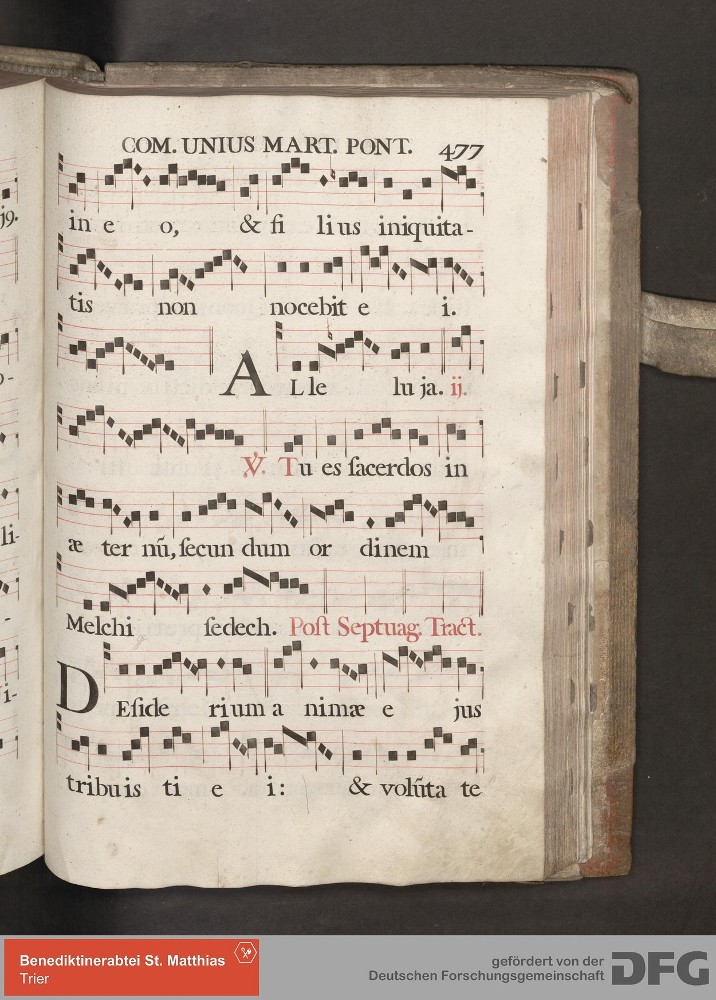 COM. UNIUS MART. PONT. 477
in e o, & fi lius iniquita-
tis non nocebit e i.
ALle lu ja. ij.
℣. Tu es ſacerdos in
æ ter nũ, ſecun dum or dinem
Melchi ſedech. Poſt Septuag. Tract.
DEſide rium a nimæ e jus
tribuis ti e i: & volũta te
j9.
o-
li-
-
i-
Benediktinerabtei St. Matthias
Trier
gefördert von der
Deutschen Forschungsgemeinschaft
DFG